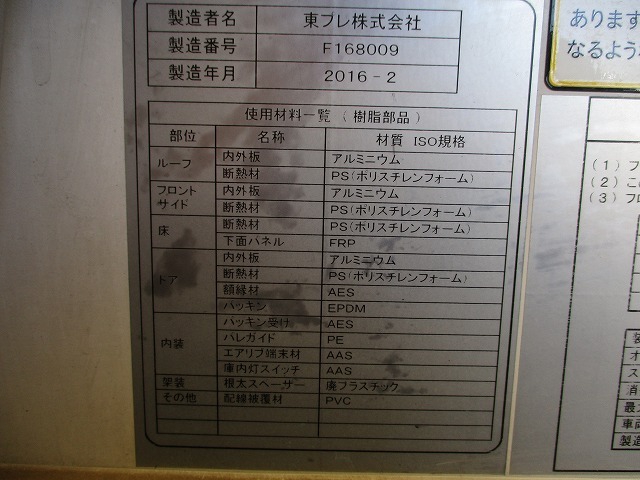 製造者名 東プレ株式会社
製造番号 F168009
製造年月 2016-2
使用材料一覧(樹脂部品)
部位 名称 材質 ISO規格
ルーフ 内外板 アルミニウム
断熱材 PS(ポリスチレンフォーム)
フロント サイド 内外板 アルミニウム
断熱材 PS(ポリスチレンフォーム)
床 断熱材 PS(ポリスチレンフォーム)
下面パネル FRP
ドア 内外板 アルミニウム
断熱材 PS(ポリスチレンフォーム)
額縁材 AES
パッキン EPDM
内装 パッキン受け AES
パレガイド PE
エアリブ端末材 AAS
庫内灯スイッチ AAS
架装 根太スペーサー 廃プラスチック
その他 配線被覆材 PVC
あります
なるよう
(1) フ
(2) こ
(3) フロ
オ
ス
削
最
車両
製造